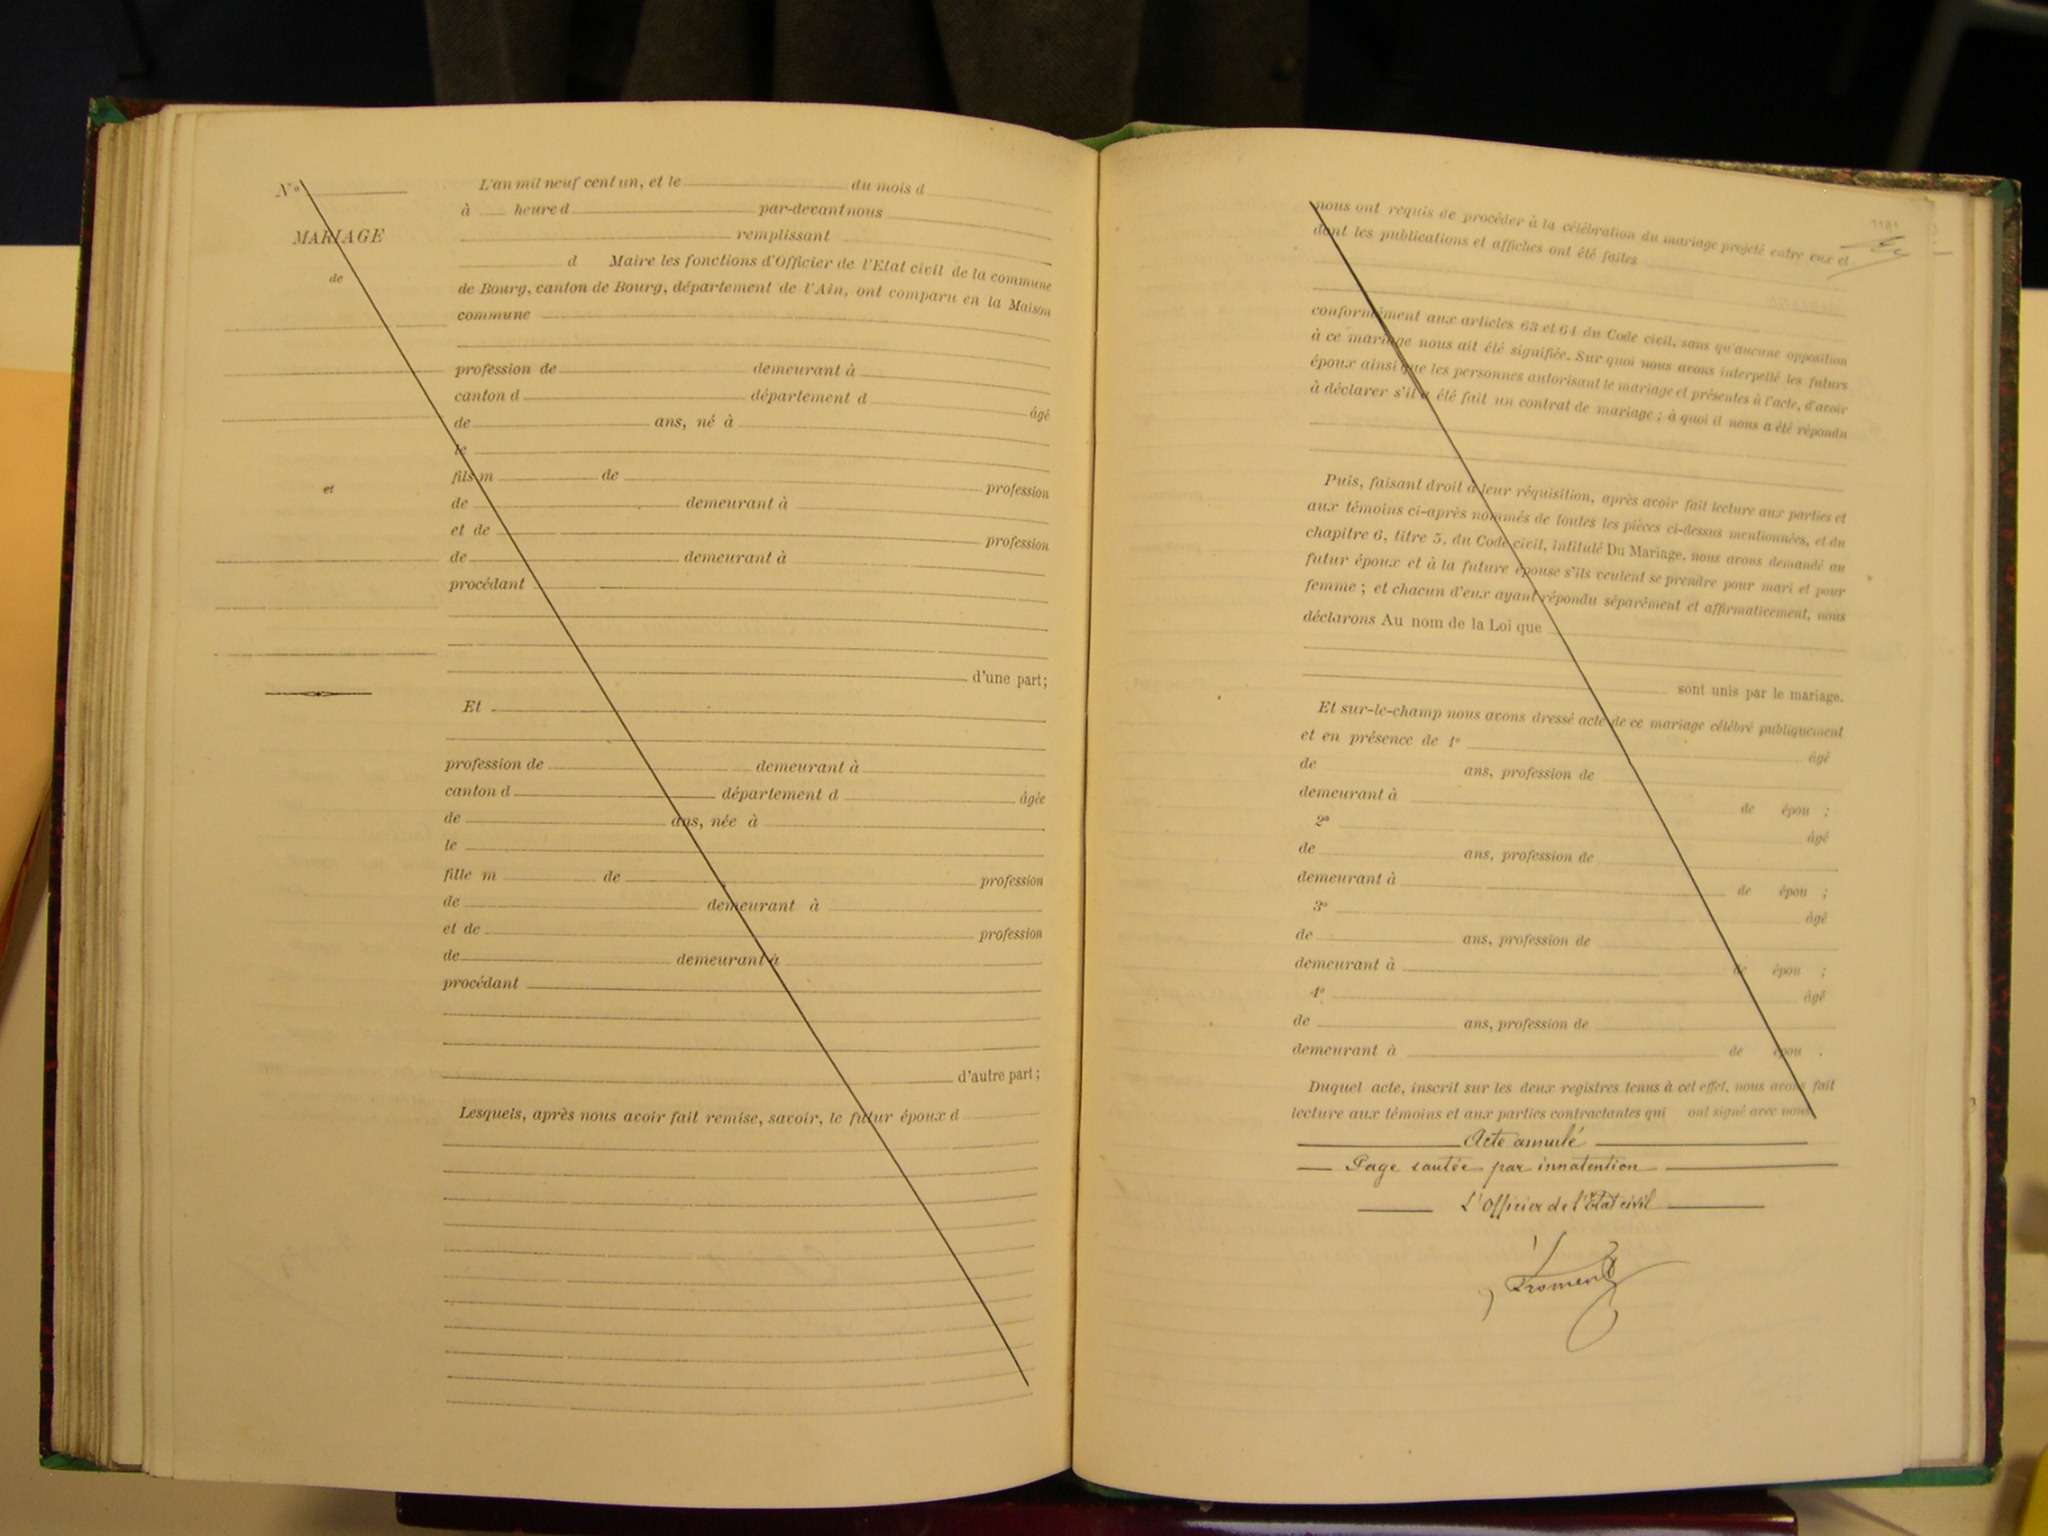 N°
MARIAGE
de
et
L'an mil neuf cent un, et le du mois d
à heure d par-devant nous
remplissant
d Maire les fonctions d'Officier de l'Etat civil de la commune
de Bourg, canton de Bourg, département de l'Ain, ont comparu en la Maison
commune
profession de demeurant à
canton d département d âgé
de ans, né à
le
fils m de profession
de demeurant à
et de profession
de demeurant à
procédant
d'une part;
Et
profession de demeurant à
canton d département d âgée
de ans, née à
le
fille m de profession
de demeurant à
et de profession
de demeurant à
procédant
d'autre part;
Lesquels, après nous avoir fait remise, savoir, le futur époux d
nous ont requis de procéder à la célébration du mariage projeté entre eux et
dont les publications et affiches ont été faites
conformément aux articles 63 et 64 du Code civil, sans qu'aucune opposition
à ce mariage nous ait été signifiée. Sur quoi nous avons interpellé les futurs
époux ainsi que les personnes autorisant le mariage et présentes à l'acte, d'avoir
à déclarer s'il a été fait un contrat de mariage; à quoi il nous a été répondu
Puis, faisant droit à leur réquisition, après avoir fait lecture aux parties et
aux témoins ci-après nommés de toutes les pièces ci-dessus mentionnées, et du
chapitre 6, titre 5, du Code civil, intitulé Du Mariage, nous avons demandé au
futur époux et à la future épouse s'ils veulent se prendre pour mari et pour
femme; et chacun d'eux ayant répondu séparément et affirmativement, nous
déclarons Au nom de la Loi que
sont unis par le mariage.
Et sur-le-champ nous avons dressé acte de ce mariage célébré publiquement
et en présence de 1° âgé
de ans, profession de
demeurant à de épou ;
2° âgé
de ans, profession de
demeurant à de épou ;
3° âgé
de ans, profession de
demeurant à de épou ;
4° âgé
de ans, profession de
demeurant à de épou .
Duquel acte, inscrit sur les deux registres tenus à cet effet, nous avons fait
lecture aux témoins et aux parties contractantes qui ont signé avec nous
Acte annulé
Page sautée par innatention
L'Officier de l'Etat civil
Froment